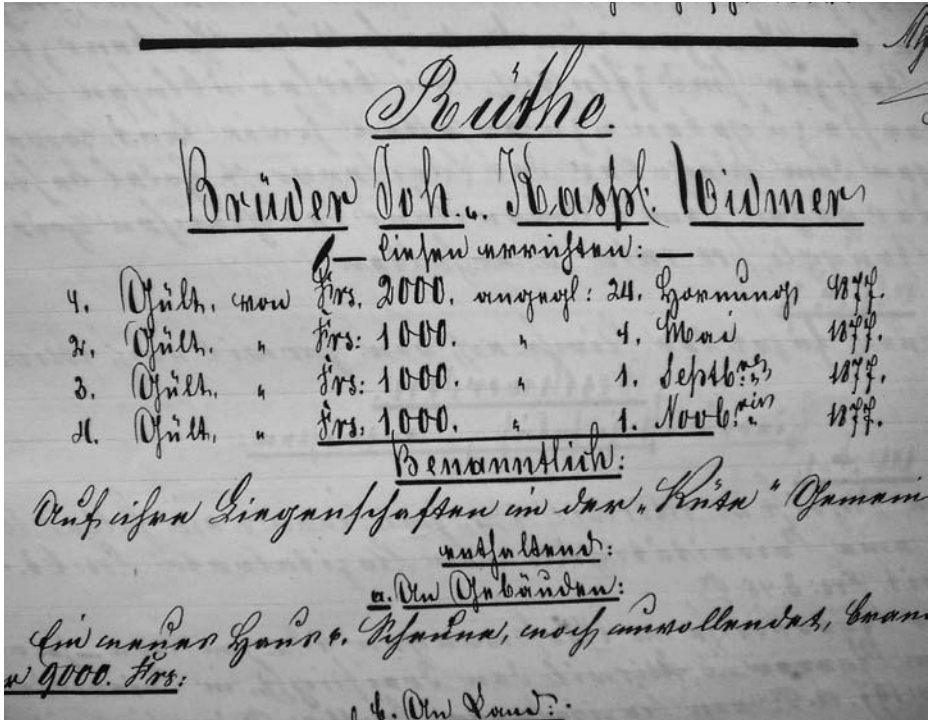 Rüthe.
Brüder Joh. u. Kaspl. Widmer
— liesen errichten: —
1. Gült. von Frs. 2000. angegl: 24. Hornung 1877.
2. Gült. " Frs: 1000. " 1. Mai 1877.
3. Gült. " Frs: 1000. " 1. Septb. 1877.
4. Gült. " Frs: 1000. " 1. Novb. 1877.
Benanntlich:
Auf ihre Liegenschaften in der „Rüte“ Gemein
enthaltend:
a. An Gebäuden:
Ein neues Haus u. Scheune, noch unvollendet, bran
9000. Frs:
b. An Land: